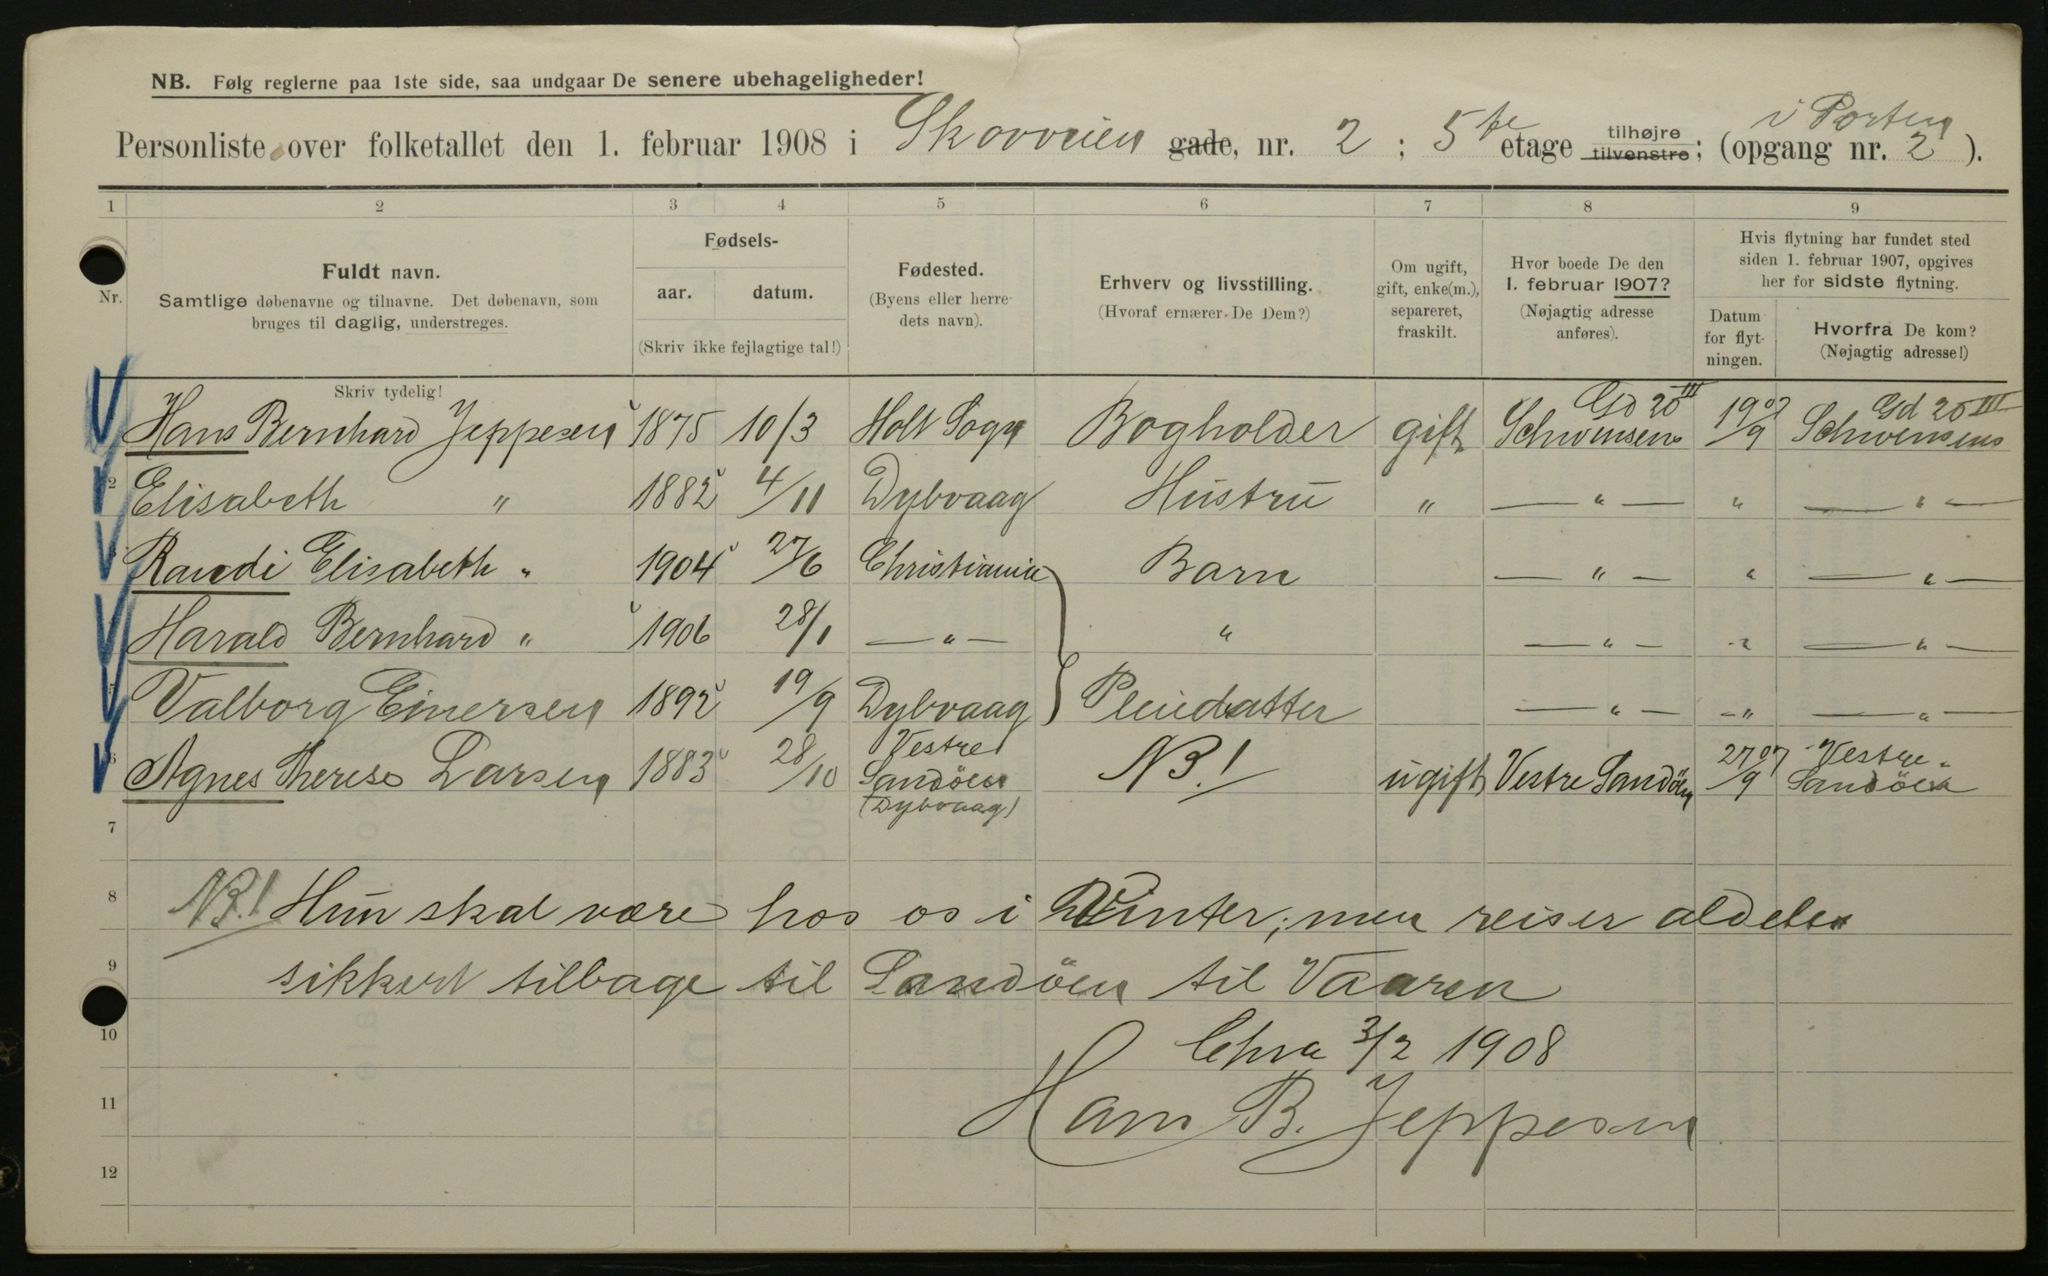 NB. Følg reglerne paa 1ste side, saa undgaar De senere ubehageligheder!
i Porten
Personliste over folketallet den 1. februar 1908 i Skovveien gade, nr. 2; 5te etage tilhøjre tilvenstre; (opgang nr. 2).
1 2 3 4 5 6 7 8 9
Nr.
Fuldt navn.
Samtlige døbenavne og tilnavne. Det døbenavn, som
bruges til daglig, understreges.
Skriv tydelig!
Fødsels-
aar. datum.
(Skriv ikke fejlagtige tal!)
Fødested.
(Byens eller herre-
dets navn).
Erhverv og livsstilling.
(Hvoraf ernærer De Dem?)
Om ugift,
gift, enke(m.),
separeret,
fraskilt.
Hvor boede De den
1. februar 1907?
(Nøjagtig adresse
anføres).
Hvis flytning har fundet sted
siden 1. februar 1907, opgives
her for sidste flytning.
Datum
for flyt-
ningen.
Hvorfra De kom?
(Nøjagtig adresse!)
Hans Bernhard Jeppesen 1875 10/3 Holt Sogn Bogholder gift Schwensens Gd 20 III 19/9 07 Schwensens Gd 20 III
2 Elisabeth " 1882 4/11 Dybvaag Hustru " — " — " — " —
Randi Elisabeth " 1904 27/6 Christiania Barn — " — " — " —
Harald Bernhard " 1906 28/1 — " — " — " — " — " —
Valborg Einersen 1892 19/9 Dybvaag Pleiedatter — " — " — " —
6 Agnes Therese Larsen 1883 28/10 Vestre Sandöen (Dybvaag) NB! ugift Vestre Sandöen 27/9 07 Vestre Sandöen
7
8 NB! Hun skal være hos os i Vinter; men reiser aldeles
9 sikkert tilbage til Sandöen til Vaaren
10 Chra 3/2 1908
11 Hans B. Jeppesen
12